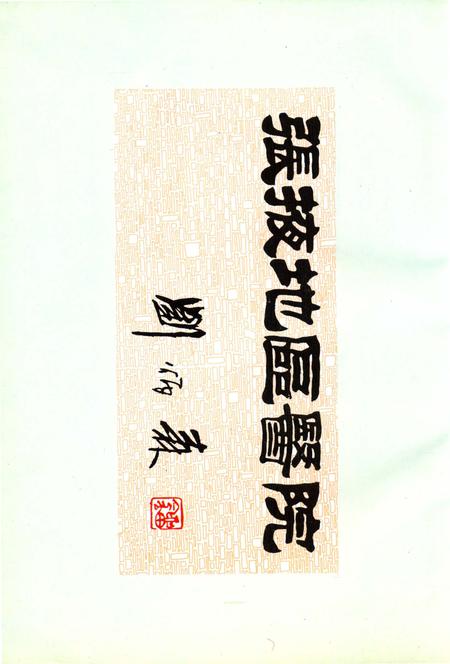 張掖地區醫院
劉炳森